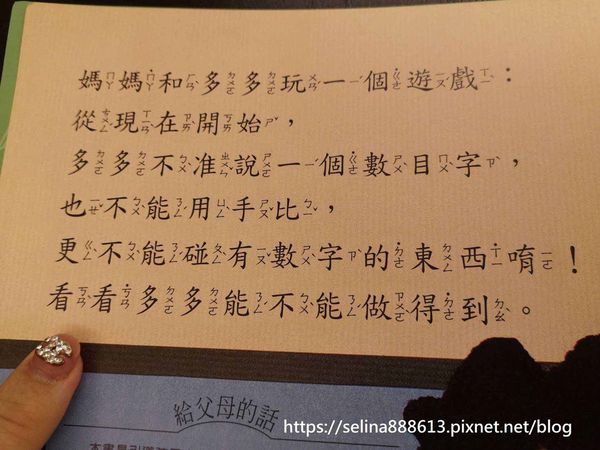 媽媽和多多玩一個遊戲：
從現在開始，
多多不准說一個數目字，
也不能用手比，
更不能碰有數字的東西唷！
看看多多能不能做得到。
給父母的話
https://selina888613.pixnet.net/blog